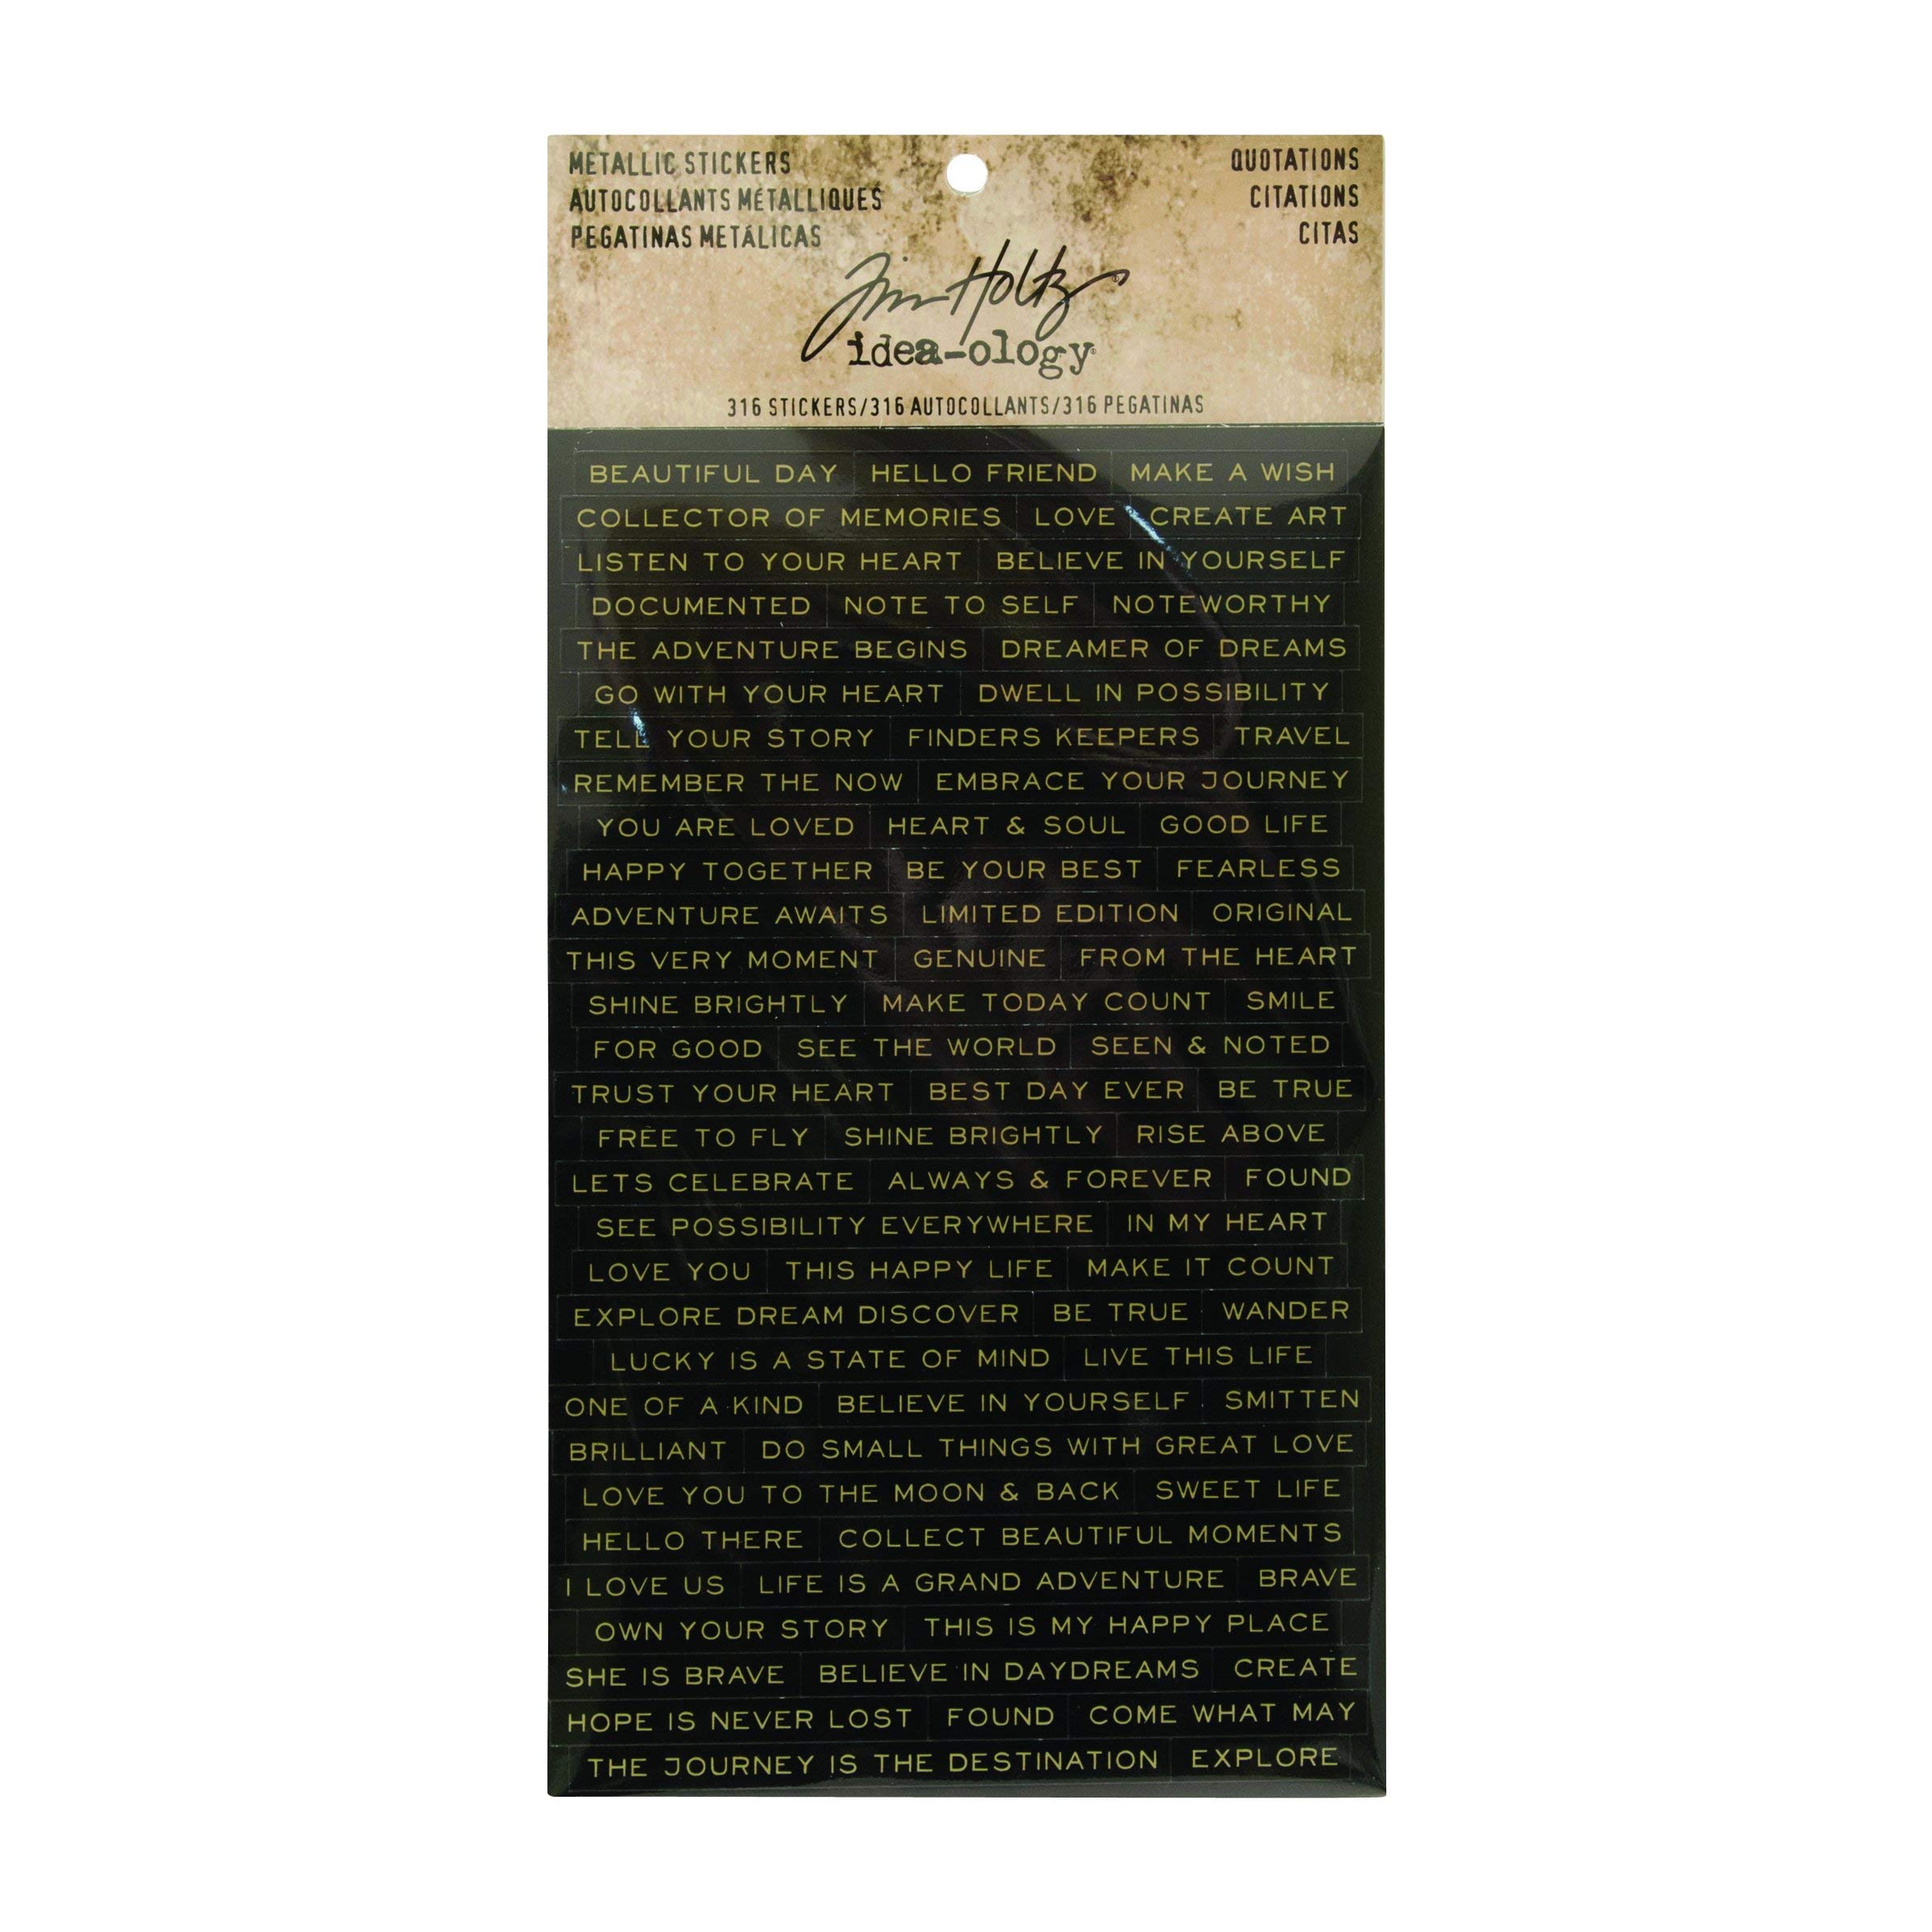 METALLIC STICKERS
AUTOCOLLANTS MÉTALLIQUES
PEGATINAS METÁLICAS
QUOTATIONS
CITATIONS
CITAS
Tim Holtz®
idea-ology®
316 STICKERS/316 AUTOCOLLANTS/316 PEGATINAS
BEAUTIFUL DAY HELLO FRIEND MAKE A WISH
COLLECTOR OF MEMORIES LOVE CREATE ART
LISTEN TO YOUR HEART BELIEVE IN YOURSELF
DOCUMENTED NOTE TO SELF NOTEWORTHY
THE ADVENTURE BEGINS DREAMER OF DREAMS
GO WITH YOUR HEART DWELL IN POSSIBILITY
TELL YOUR STORY FINDERS KEEPERS TRAVEL
REMEMBER THE NOW EMBRACE YOUR JOURNEY
YOU ARE LOVED HEART & SOUL GOOD LIFE
HAPPY TOGETHER BE YOUR BEST FEARLESS
ADVENTURE AWAITS LIMITED EDITION ORIGINAL
THIS VERY MOMENT GENUINE FROM THE HEART
SHINE BRIGHTLY MAKE TODAY COUNT SMILE
FOR GOOD SEE THE WORLD SEEN & NOTED
TRUST YOUR HEART BEST DAY EVER BE TRUE
FREE TO FLY SHINE BRIGHTLY RISE ABOVE
LETS CELEBRATE ALWAYS & FOREVER FOUND
SEE POSSIBILITY EVERYWHERE IN MY HEART
LOVE YOU THIS HAPPY LIFE MAKE IT COUNT
EXPLORE DREAM DISCOVER BE TRUE WANDER
LUCKY IS A STATE OF MIND LIVE THIS LIFE
ONE OF A KIND BELIEVE IN YOURSELF SMITTEN
BRILLIANT DO SMALL THINGS WITH GREAT LOVE
LOVE YOU TO THE MOON & BACK SWEET LIFE
HELLO THERE COLLECT BEAUTIFUL MOMENTS
I LOVE US LIFE IS A GRAND ADVENTURE BRAVE
OWN YOUR STORY THIS IS MY HAPPY PLACE
SHE IS BRAVE BELIEVE IN DAYDREAMS CREATE
HOPE IS NEVER LOST FOUND COME WHAT MAY
THE JOURNEY IS THE DESTINATION EXPLORE